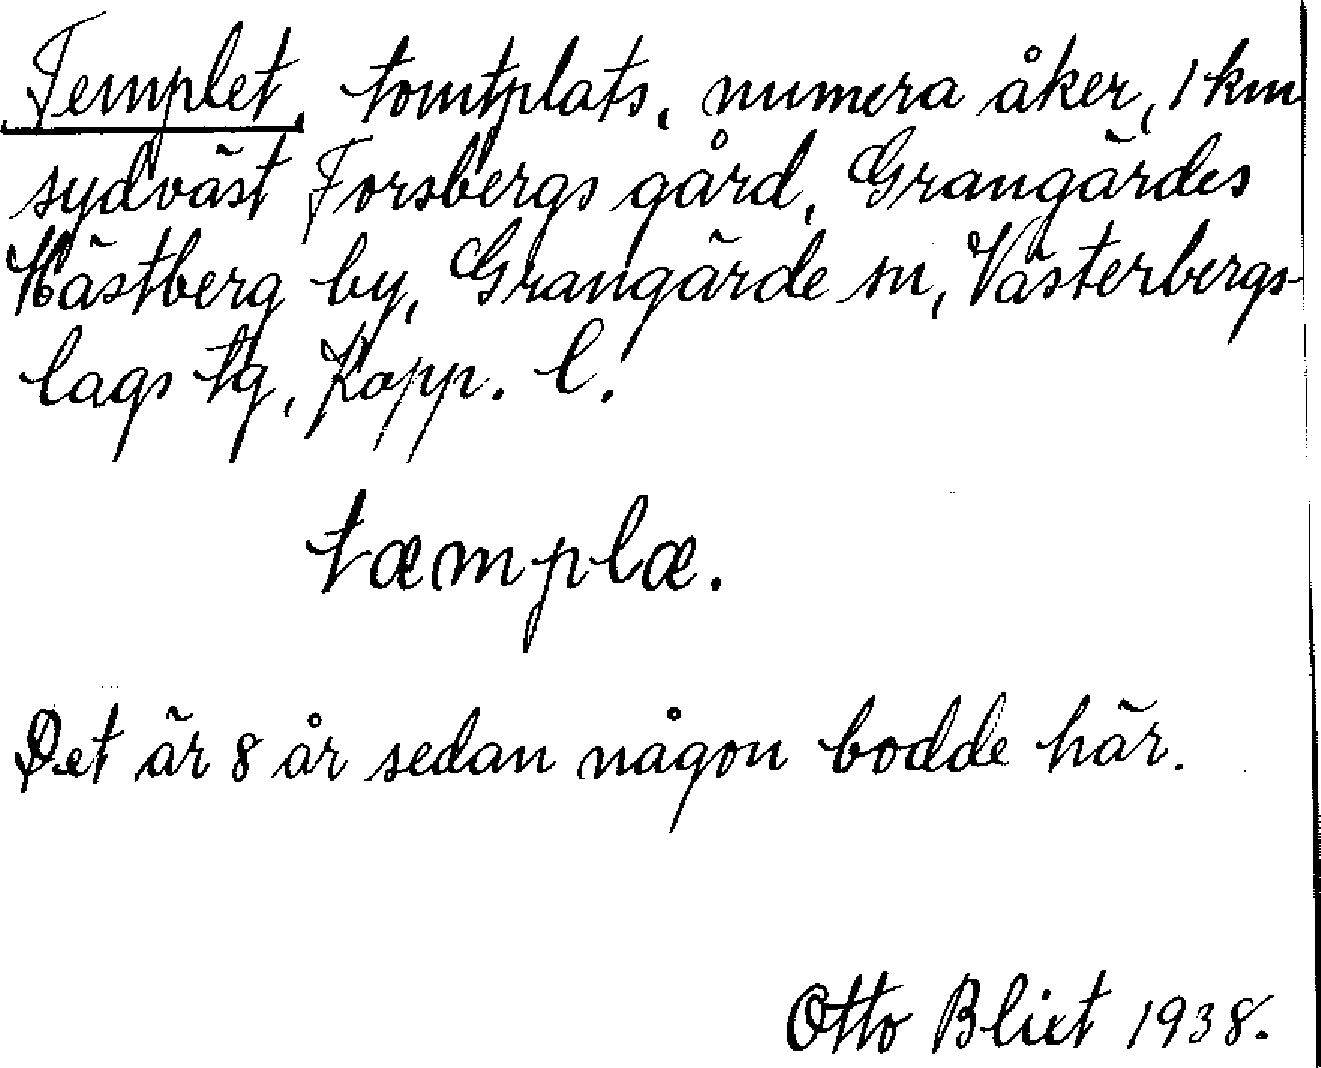 Templet, tomtplats, numera åker, 1 km
sydväst Forsbergs gård, Grangärdes
Hästberg by, Grangärde sn, Västerbergs-
lags tg, Kopp. l.
tæmplæ.
Det är 8 år sedan någon bodde här.
Otto Blixt 1938.